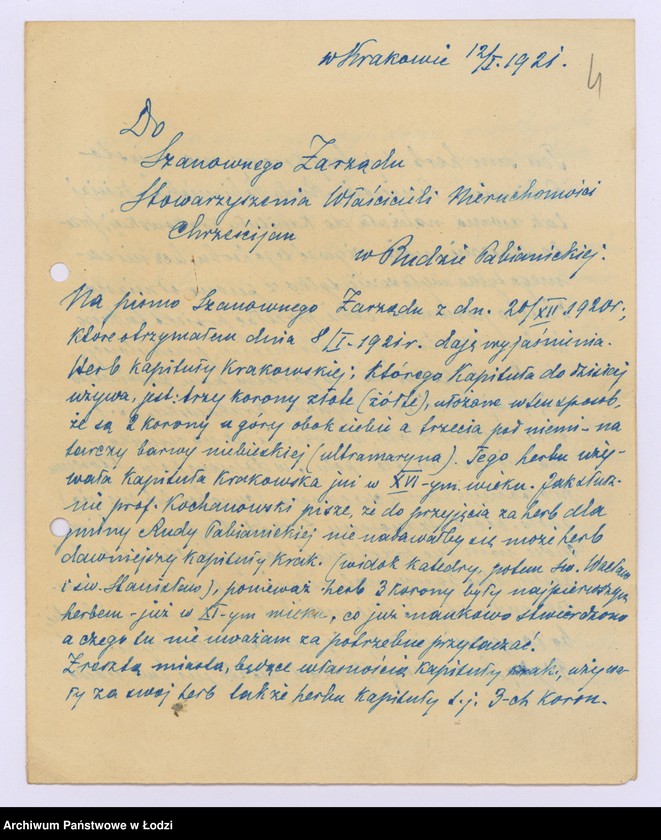 w Krakowie 12/I. 1921.
4
Do
Szanownego Zarządu
Stowarzyszenia Właścicieli Nieruchomości
Chrześcijan
w Rudzie Pabianickiej.
Na pismo Szanownego Zarządu z dn. 20/XII 1920r.,
które otrzymałem dnia 8/I. 1921r. dają wyjaśnienia.
Herb Kapituły Krakowskiej, którego Kapituła do dzisiaj
używa, jest: trzy korony złote (żółte), ułożone w ten sposób,
że są 2 korony u góry obok siebie a trzecia pod niemi - na
tarczy barwy niebieskiej (ultramaryna). Tego herbu uży-
wała Kapituła Krakowska już w XVI-ym wieku. Jak słusz-
nie prof. Kochanowski pisze, że do przyjęcia za herb dla
gminy Rudy Pabianickiej nie nadawałby się może herb
dawniejszy Kapituły Krak. (widok katedry, potem św. Wacław
i św. Stanisław), ponieważ herb 3 korony były najpierwszym
herbem - już w XI-ym wieku, co już naukowo stwierdzono
a czego tu nie uważam za potrzebne przytaczać.
Zresztą miasta, będące własnością Kapituły Krak., używa-
ły za swój herb także herbu Kapituły t.j. 3-ch koron.
Archiwum Państwowe w Łodzi